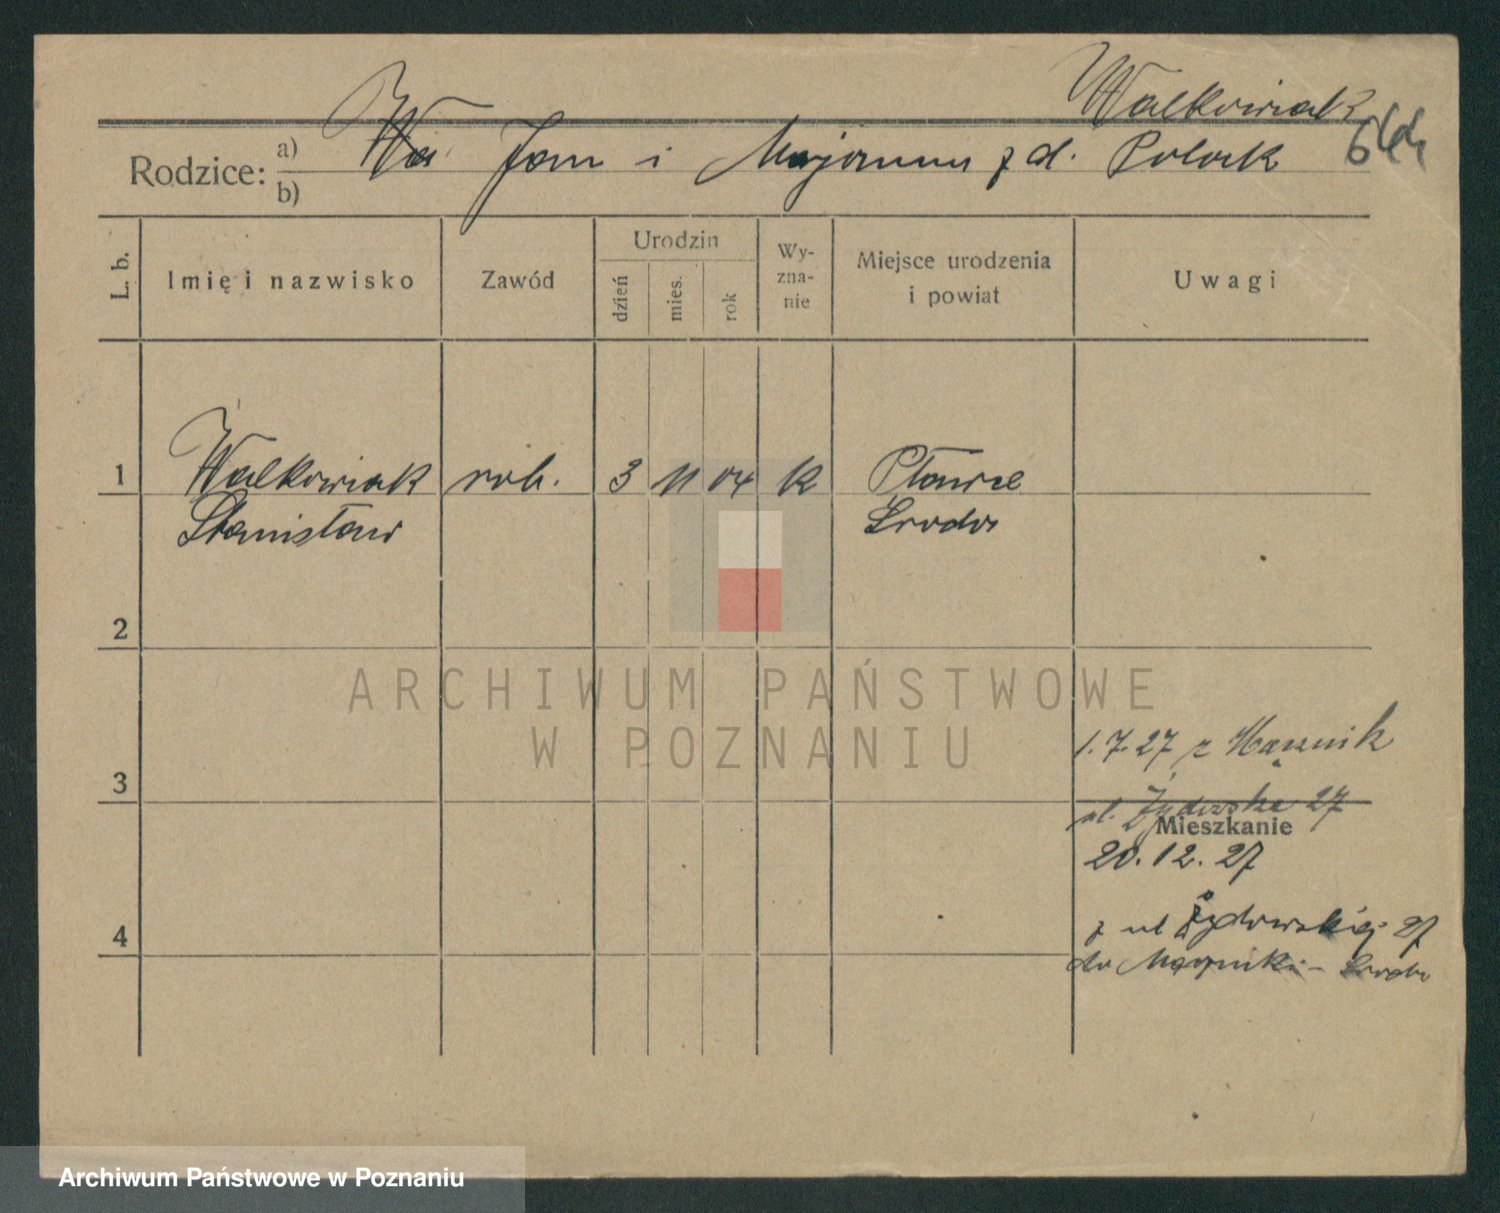 Walkowiak
644
Rodzice: a) Wa Jan i Marjanna z d. Polack
b)
L. b.
Imię i nazwisko
Zawód
Urodzin
dzień
mies.
rok
Wy-
zna-
nie
Miejsce urodzenia
i powiat
Uwagi
1 Walkowiak rob. 3 11 04 k Pławce
Stanisław Środa
2
ARCHIWUM PAŃSTWOWE
W POZNANIU
3
1.7.27 z
ul. Żydowska 27
Mieszkanie
20.12.27
4
z ul Żydowskiej 27
do Środa
Archiwum Państwowe w Poznaniu